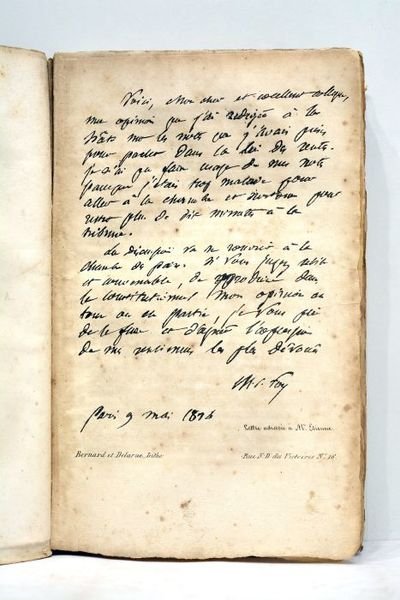 Voici, mon cher et excellent collègue,
mon opinion que j'ai rédigée à la
hâte sur les notes que j'avais prises
pour parler dans la loi des rentes.
Je n'ai pu faire usage de mes notes
parceque j'étais trop malade pour
aller à la chambre et surtout pour
rester plus de dix minutes à la
tribune.
La discussion va se rouvrir à la
chambre des pairs. Si vous jugez utile
et convenable, de reproduire dans
le constitutionnel mon opinion en
tout ou en partie, je vous prie
de le faire et d'agréer l'expression
de mes sentiments les plus dévoués
M. S. Foy
Paris 9 mai 1824
Lettre adressée à Mr. Etienne
Bernard et Delarue, Litho
Rue N. D. des Victoires No. 16